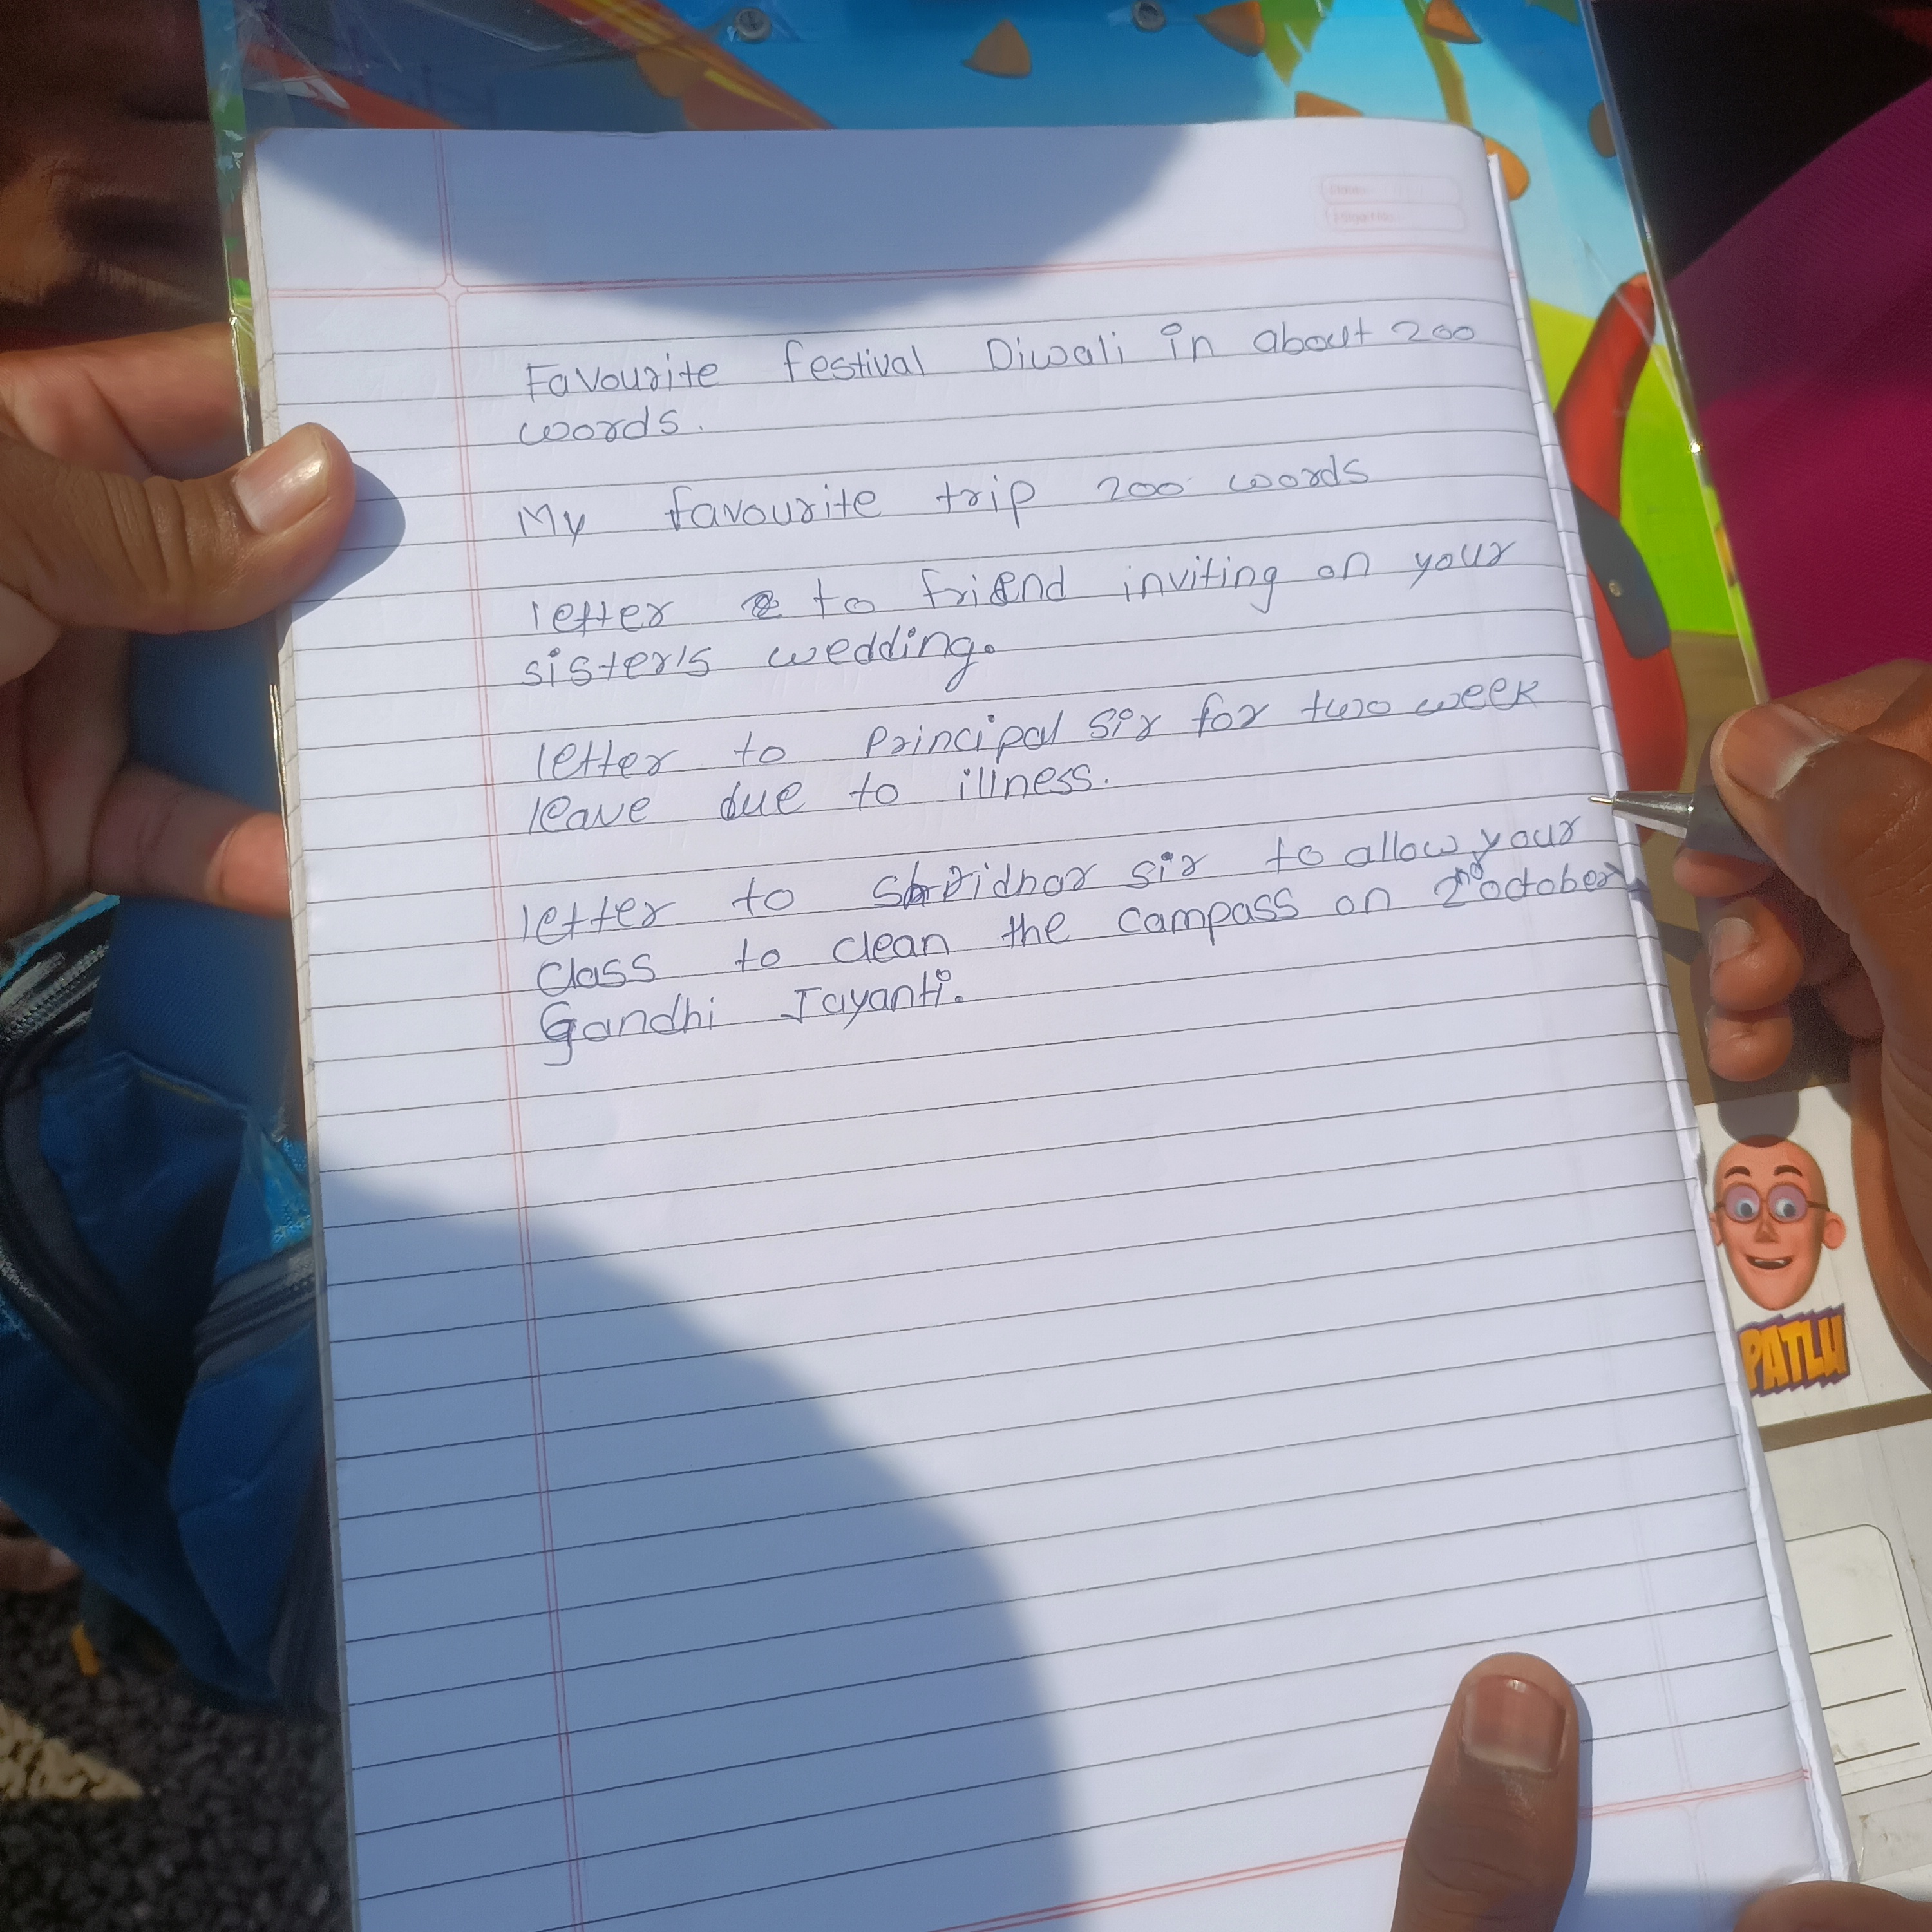 Favourite festival Diwali in about 200
words.
My favourite trip 200 words
letter to friend inviting on your
sister's wedding.
letter to principal sir for two week
leave due to illness.
letter to Shridhar sir to allow your
class to clean the campass on 2nd october
Gandhi Jayanti.
PATLU